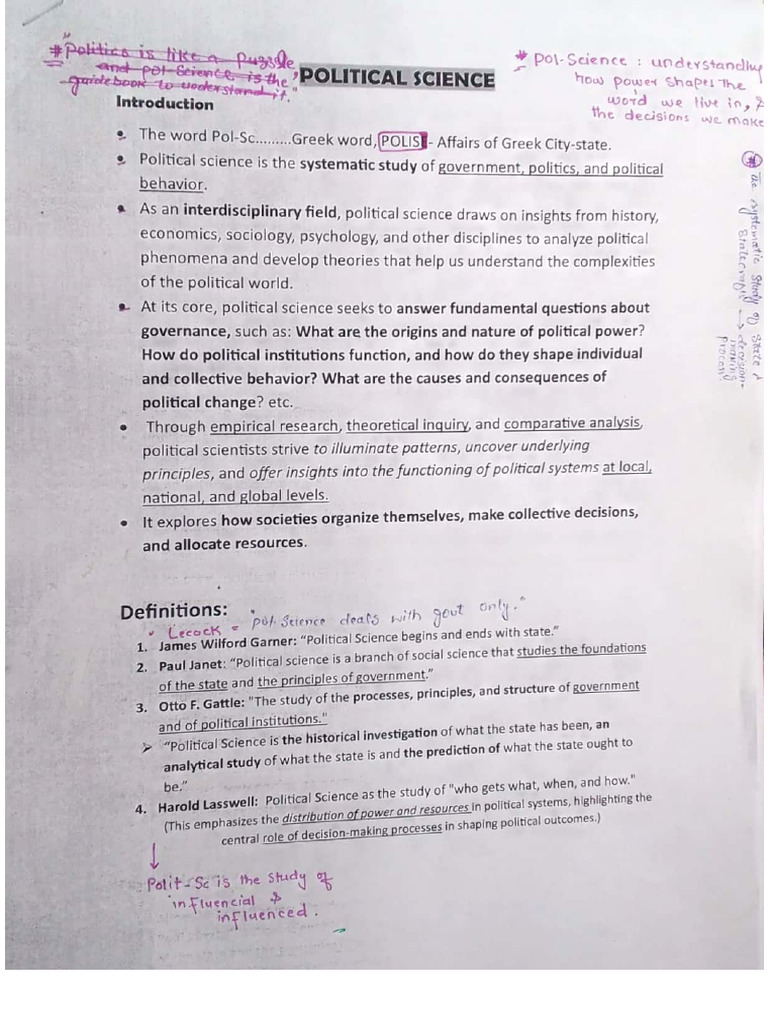 # "Politics is like a puzzle
and pol-Science is the
guidebook to understand it."
POLITICAL SCIENCE
# Pol-Science : understanding
how power shapes the
word we live in, &
the decisions we make
Introduction
• The word Pol-Sc.........Greek word, POLIS - Affairs of Greek City-state.
• Political science is the systematic study of government, politics, and political
behavior.
• As an interdisciplinary field, political science draws on insights from history,
economics, sociology, psychology, and other disciplines to analyze political
phenomena and develop theories that help us understand the complexities
of the political world.
• At its core, political science seeks to answer fundamental questions about
governance, such as: What are the origins and nature of political power?
How do political institutions function, and how do they shape individual
and collective behavior? What are the causes and consequences of
political change? etc.
• Through empirical research, theoretical inquiry, and comparative analysis,
political scientists strive to illuminate patterns, uncover underlying
principles, and offer insights into the functioning of political systems at local,
national, and global levels.
• It explores how societies organize themselves, make collective decisions,
and allocate resources.
# The systematic study of state &
Statecraft → decision-
making
process
Definitions:
• Lecock = "pol. Science deals with govt only."
1. James Wilford Garner: "Political Science begins and ends with state."
2. Paul Janet: "Political science is a branch of social science that studies the foundations
of the state and the principles of government."
3. Otto F. Gattle: "The study of the processes, principles, and structure of government
and of political institutions."
➢ "Political Science is the historical investigation of what the state has been, an
analytical study of what the state is and the prediction of what the state ought to
be."
4. Harold Lasswell: Political Science as the study of "who gets what, when, and how."
(This emphasizes the distribution of power and resources in political systems, highlighting the
central role of decision-making processes in shaping political outcomes.)
↓
Polit-Sc is the study of
influencial &
influenced.